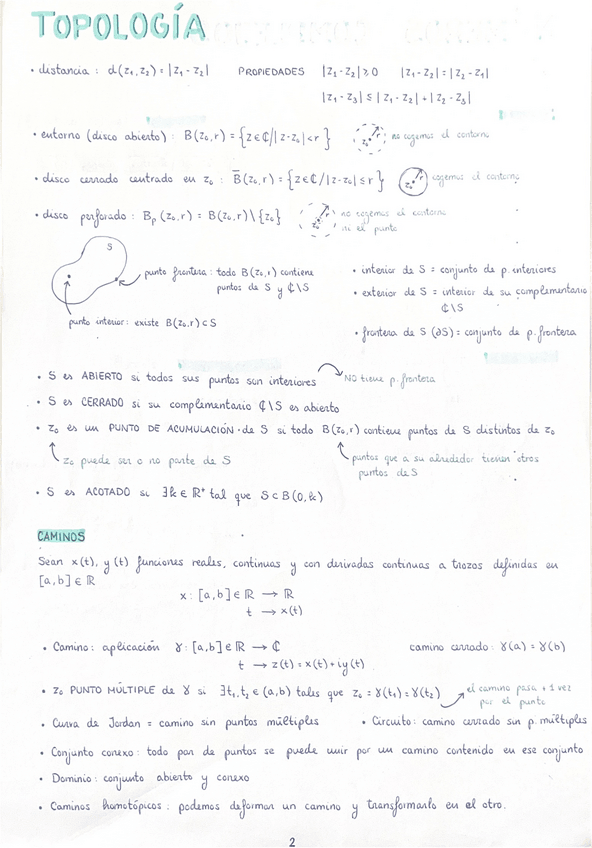 TOPOLOGÍA
• distancia : d(z₁,z₂) = |z₁ - z₂| PROPIEDADES |z₁ - z₂| ≥ 0 |z₁ - z₂| = |z₂ - z₁|
|z₁ - z₃| ≤ |z₁ - z₂| + |z₂ - z₃|
• entorno (disco abierto) : B(z₀,r) = {z ∈ ℂ / |z - z₀| < r } no cogemos el contorno
• disco cerrado centrado en z₀ : B̅(z₀,r) = {z ∈ ℂ / |z - z₀| ≤ r} cogemos el contorno
• disco perforado : Bₚ(z₀,r) = B(z₀,r) \ {z₀} no cogemos el contorno
ni el punto
S
punto frontera : todo B(z₀,r) contiene
puntos de S y ℂ\S
punto interior : existe B(z₀,r) ⊂ S
• interior de S = conjunto de p. interiores
• exterior de S = interior de su complementario
ℂ\S
• frontera de S (∂S) = conjunto de p. frontera
• S es ABIERTO si todos sus puntos son interiores NO tiene p. frontera
• S es CERRADO si su complementario ℂ\S es abierto
• z₀ es un PUNTO DE ACUMULACIÓN de S si todo B(z₀,r) contiene puntos de S distintos de z₀
z₀ puede ser o no parte de S
puntos que a su alrededor tienen otros
puntos de S
• S es ACOTADO si ∃k ∈ ℝ⁺ tal que S ⊂ B(0,k)
CAMINOS
Sean x(t), y(t) funciones reales, continuas y con derivadas continuas a trozos definidas en
[a,b] ∈ ℝ
x : [a,b] ∈ ℝ → ℝ
t → x(t)
• Camino : aplicación γ : [a,b] ∈ ℝ → ℂ camino cerrado : γ(a) = γ(b)
t → z(t) = x(t) + iy(t)
• z₀ PUNTO MÚLTIPLE de γ si ∃t₁,t₂ ∈ (a,b) tales que z₀ = γ(t₁) = γ(t₂) el camino pasa +1 vez
por el punto
• Curva de Jordan = camino sin puntos múltiples • Circuito : camino cerrado sin p. múltiples
• Conjunto conexo : todo par de puntos se puede unir por un camino contenido en ese conjunto
• Dominio : conjunto abierto y conexo
• Caminos homotópicos : podemos deformar un camino y transformarlo en el otro.
2